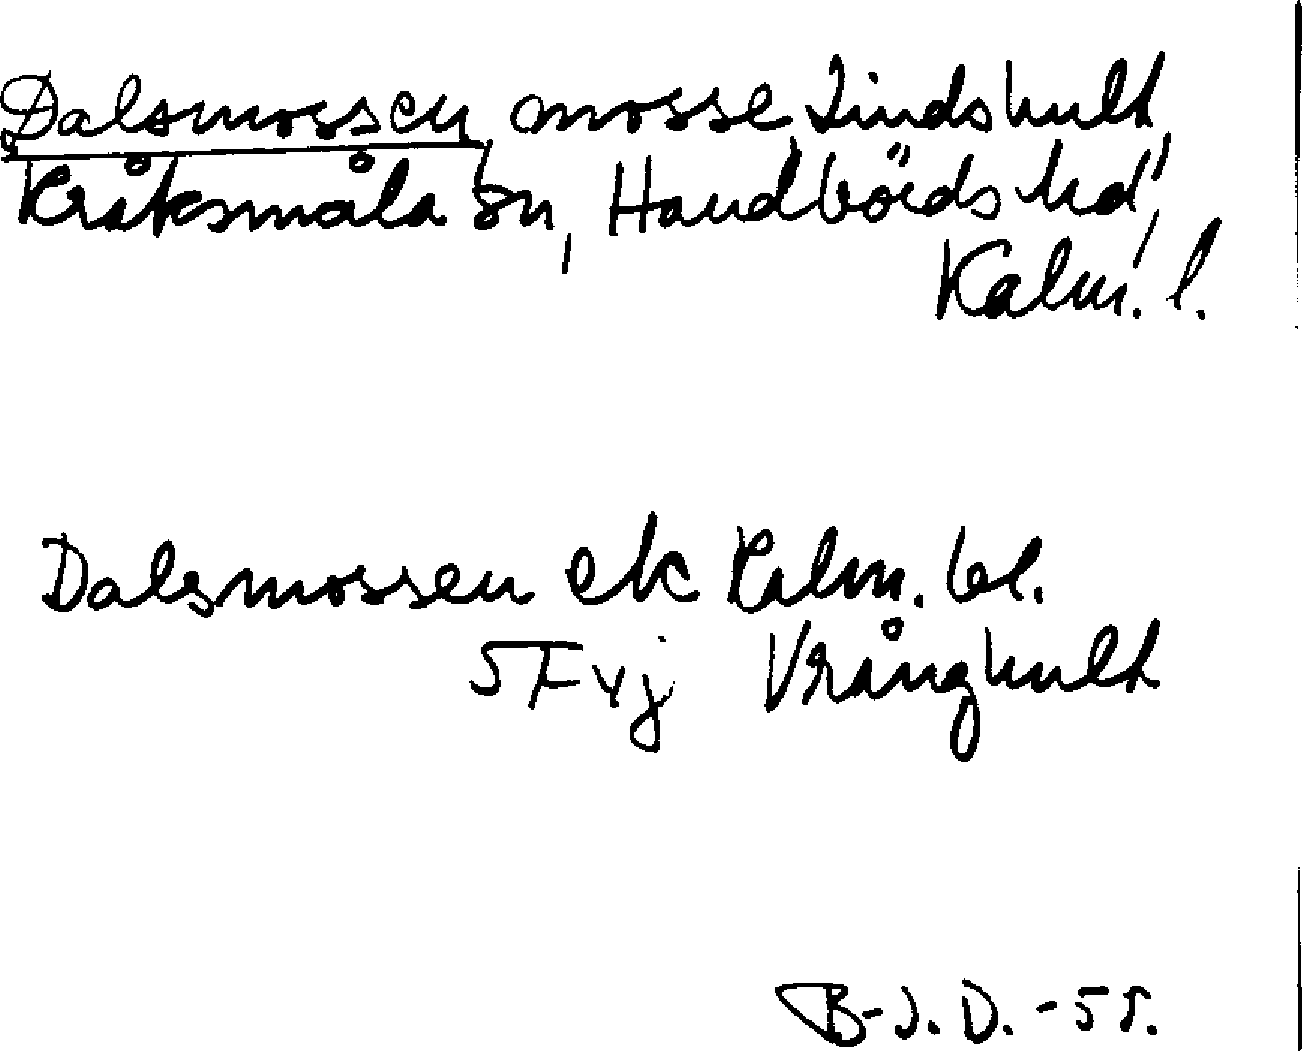 Dalsmossen, mosse, Lindshult,
Kråksmåla sn, Handbörds hd,
Kalm. l.
Dalsmossen ek Kalm. bl.
5 F v j Vrånghult
B-J. D. -55.